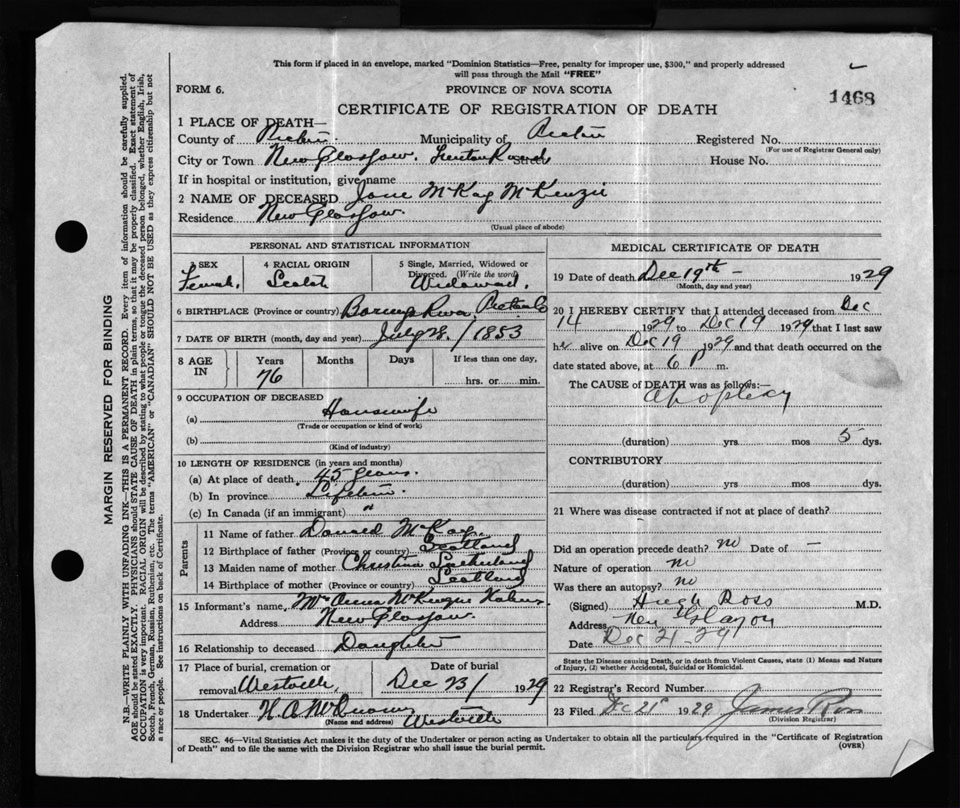 This form if placed in an envelope, marked "Dominion Statistics—Free, penalty for improper use, $300," and properly addressed
will pass through the Mail "FREE"
FORM 6.
PROVINCE OF NOVA SCOTIA
1468
CERTIFICATE OF REGISTRATION OF DEATH
1 PLACE OF DEATH—
County of Pictou Municipality of Pictou Registered No.
(For use of Registrar General only)
City or Town New Glasgow. Trenton Road Street House No.
If in hospital or institution, give name
2 NAME OF DECEASED Jane McKay McKenzie
Residence New Glasgow.
(Usual place of abode)
PERSONAL AND STATISTICAL INFORMATION
3 SEX Female
4 RACIAL ORIGIN Scotch
5 Single, Married, Widowed or Divorced. (Write the word) Widowed.
6 BIRTHPLACE (Province or country) Pictou Co
7 DATE OF BIRTH (month, day and year) July 28/1853
8 AGE IN Years 76 Months Days If less than one day, hrs. or min.
9 OCCUPATION OF DECEASED
(a) Housewife
(Trade or occupation or kind of work)
(b)
(Kind of industry)
10 LENGTH OF RESIDENCE (in years and months)
(a) At place of death 45 years.
(b) In province Lifetime.
(c) In Canada (if an immigrant) "
Parents
11 Name of father Donald McKay
12 Birthplace of father (Province or country) Scotland
13 Maiden name of mother Christina Sutherland
14 Birthplace of mother (Province or country) Scotland
15 Informant's name Mrs McKenzie
Address New Glasgow.
16 Relationship to deceased Daughter
17 Place of burial, cremation or removal Westville
Date of burial Dec 23/ 1929
18 Undertaker H. A. Westville
(Name and address)
MEDICAL CERTIFICATE OF DEATH
19 Date of death Dec 19th — 1929
(Month, day and year)
20 I HEREBY CERTIFY that I attended deceased from Dec
14 1929 to Dec 19 1929 that I last saw
her alive on Dec 19 1929 and that death occurred on the
date stated above, at 6 P m.
The CAUSE of DEATH was as follows:—
Apoplexy
(duration) yrs mos 5 dys.
CONTRIBUTORY
(duration) yrs mos dys.
21 Where was disease contracted if not at place of death?
Did an operation precede death? no Date of —
Nature of operation no
Was there an autopsy? no
(Signed) Hugh Ross M.D.
Address New Glasgow
Date Dec 21 - 29
State the Disease causing Death, or in death from Violent Causes, state (1) Means and Nature
of Injury, (2) whether Accidental, Suicidal or Homicidal.
22 Registrar's Record Number
23 Filed Dec 21st 1929 James Ross
(Division Registrar)
SEC. 46—Vital Statistics Act makes it the duty of the Undertaker or person acting as Undertaker to obtain all the particulars required in the "Certificate of Registration
of Death" and to file the same with the Division Registrar who shall issue the burial permit.
(OVER)
MARGIN RESERVED FOR BINDING
N.B.—WRITE PLAINLY WITH UNFADING INK—THIS IS A PERMANENT RECORD. Every item of information should be carefully supplied.
AGE should be stated EXACTLY. PHYSICIANS should STATE CAUSE OF DEATH in plain terms, so that it may be properly classified. Exact statement of
OCCUPATION is very important. RACIAL ORIGIN will be described by stating to what people or tongue the deceased person belonged, whether English, Irish,
Scotch, French, German, Russian, Ruthenian, etc. The terms "AMERICAN" or "CANADIAN" SHOULD NOT BE USED as they express citizenship but not
a race or people. See instructions on back of Certificate.